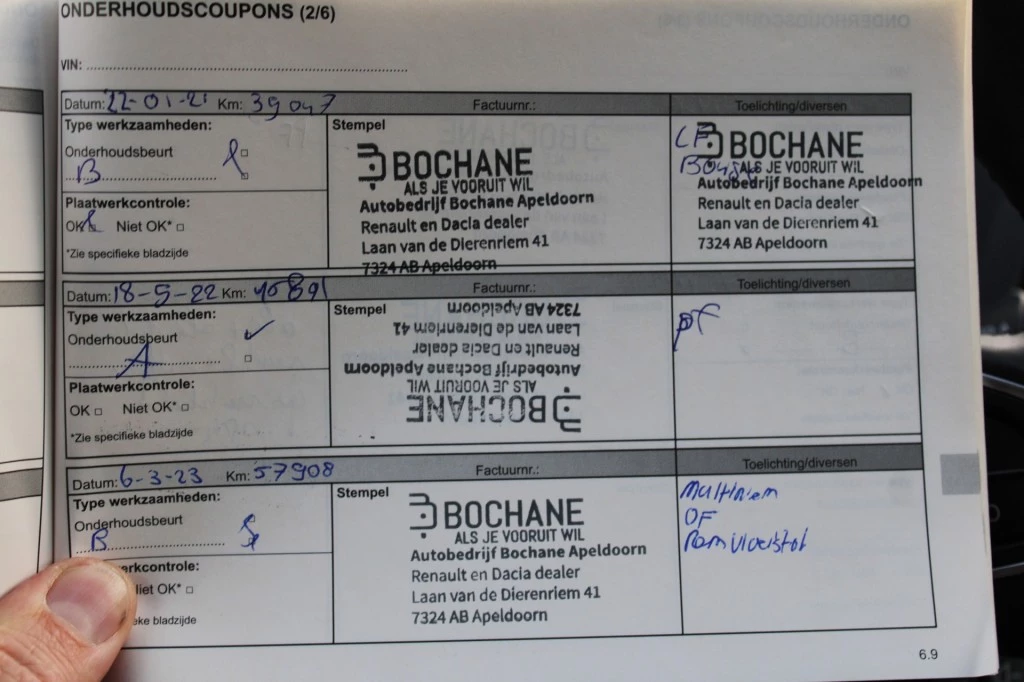 ONDERHOUDSCOUPONS (2/6)
VIN:
Datum: 22-01-21 Km: 39047 Factuurnr.: Toelichting/diversen
Type werkzaamheden:
Onderhoudsbeurt
B
Plaatwerkcontrole:
OK Niet OK*
*Zie specifieke bladzijde
Stempel
BOCHANE
ALS JE VOORUIT WIL
Autobedrijf Bochane Apeldoorn
Renault en Dacia dealer
Laan van de Dierenriem 41
7324 AB Apeldoorn
BOCHANE
ALS JE VOORUIT WIL
Autobedrijf Bochane Apeldoorn
Renault en Dacia dealer
Laan van de Dierenriem 41
7324 AB Apeldoorn
Datum: 18-5-22 Km: Factuurnr.: Toelichting/diversen
Type werkzaamheden:
Onderhoudsbeurt
A
Plaatwerkcontrole:
OK Niet OK*
*Zie specifieke bladzijde
Stempel
BOCHANE
ALS JE VOORUIT WIL
Autobedrijf Bochane Apeldoorn
Renault en Dacia dealer
Laan van de Dierenriem 41
7324 AB Apeldoorn
Datum: 6-3-23 Km: 57908 Factuurnr.: Toelichting/diversen
Type werkzaamheden:
Onderhoudsbeurt
B
rkcontrole:
iet OK*
eke bladzijde
Stempel
BOCHANE
ALS JE VOORUIT WIL
Autobedrijf Bochane Apeldoorn
Renault en Dacia dealer
Laan van de Dierenriem 41
7324 AB Apeldoorn
Multiriem
OF
Remvloeistof
6.9